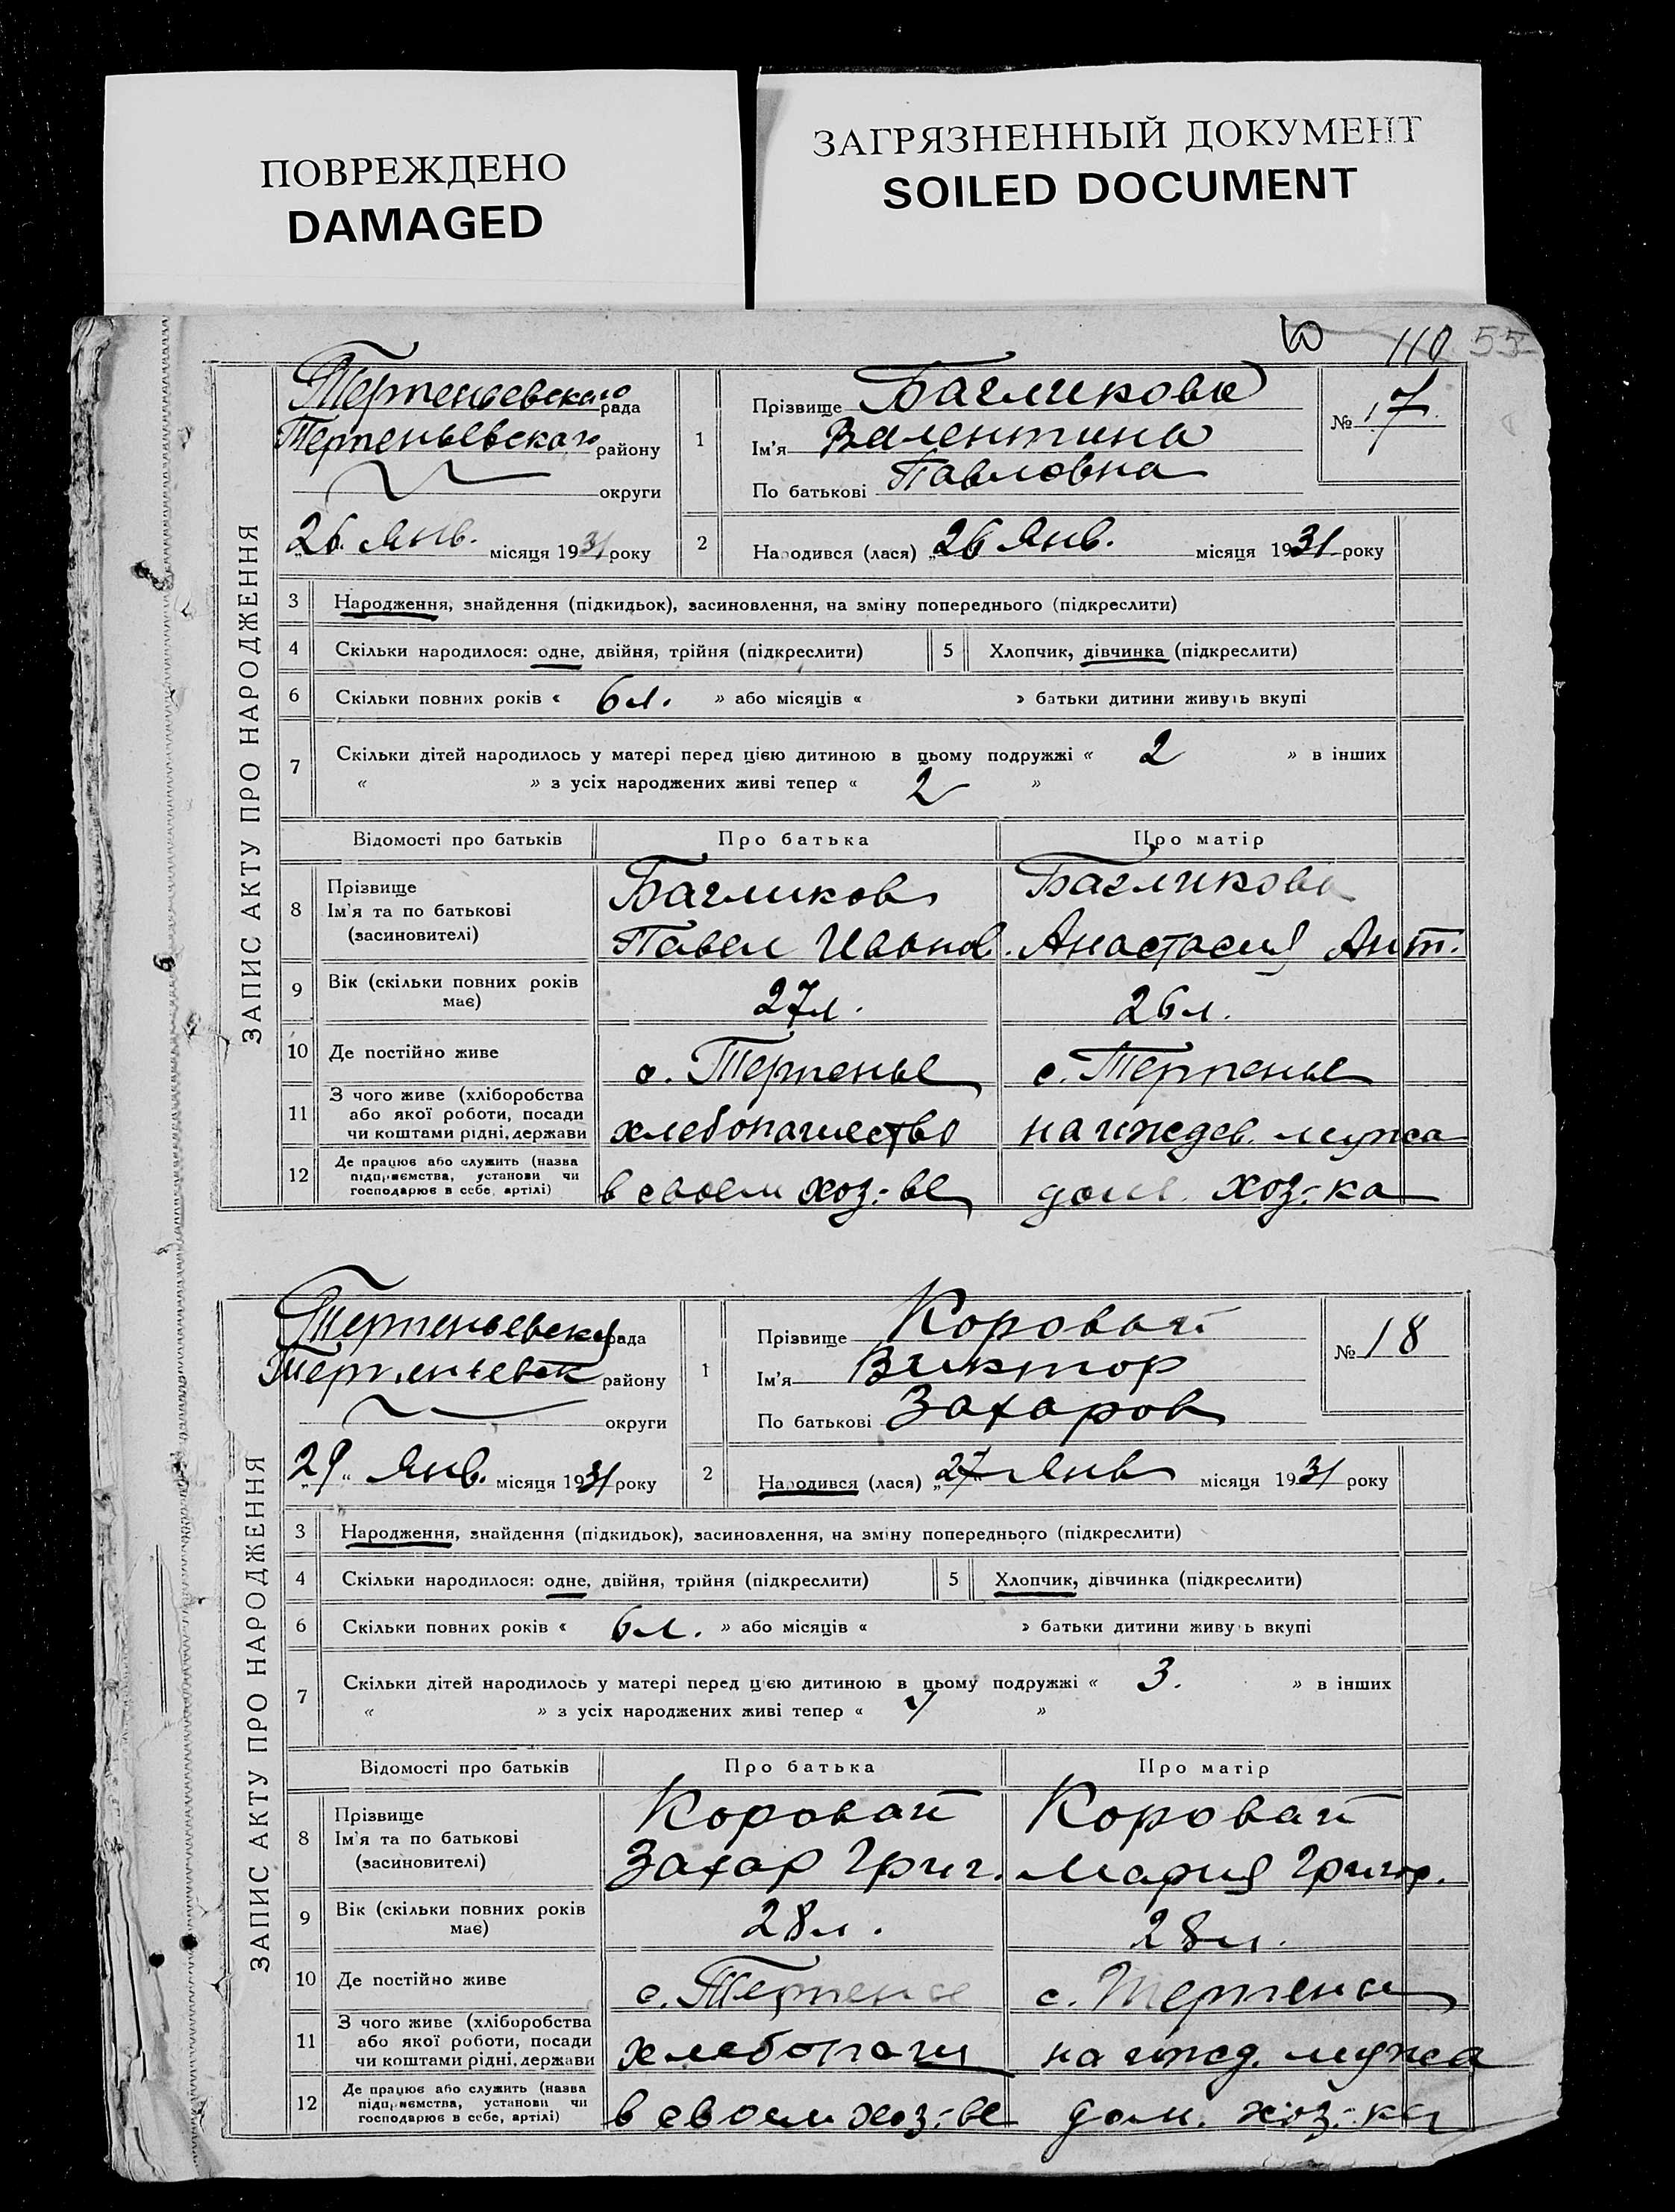 ПОВРЕЖДЕНО
DAMAGED
ЗАГРЯЗНЕННЫЙ ДОКУМЕНТ
SOILED DOCUMENT
110 55
ЗАПИС АКТУ ПРО НАРОДЖЕННЯ
Терпеньевского рада
Терпеньевского району
округи
"26" Янв. місяця 1931 року
1 Прізвище Багликова
Ім'я Валентина
По батькові Павловна
№ 17
2 Народився (лася) "26 Янв. місяця 1931 року
3 Народження, знайдення (підкидьок), засиновлення, на зміну попереднього (підкреслити)
4 Скільки народилося: одне, двійня, трійня (підкреслити) 5 Хлопчик, дівчинка (підкреслити)
6 Скільки повних років « 6 л. » або місяців « » батьки дитини живуть вкупі
7 Скільки дітей народилось у матері перед цією дитиною в цьому подружжі « 2 » в інших
« » з усіх народжених живі тепер « 2 »
Відомості про батьків Про батька Про матір
8 Прізвище Ім'я та по батькові (засиновителі)
Багликов Багликова
Павел Иванов. Анастасия Ант.
9 Вік (скільки повних років має) 27 л. 26 л.
10 Де постійно живе с. Терпенье с. Терпенье
11 З чого живе (хліборобства або якої роботи, посади чи коштами рідні, держави хлебопашество на иждев. мужа
12 Де працює або служить (назва підприємства, установи чи господарює в себе, артілі) в своем хоз-ве дом. хоз-ка
ЗАПИС АКТУ ПРО НАРОДЖЕННЯ
Терпеньевской рада
Терпеньевск району
округи
"29" Янв. місяця 1931 року
1 Прізвище Коровай
Ім'я Виктор
По батькові Захаров
№ 18
2 Народився (лася) "27" Янв місяця 1931 року
3 Народження, знайдення (підкидьок), засиновлення, на зміну попереднього (підкреслити)
4 Скільки народилося: одне, двійня, трійня (підкреслити) 5 Хлопчик, дівчинка (підкреслити)
6 Скільки повних років « 6 л. » або місяців « » батьки дитини живуть вкупі
7 Скільки дітей народилось у матері перед цією дитиною в цьому подружжі « 3. » в інших
« » з усіх народжених живі тепер « »
Відомості про батьків Про батька Про матір
8 Прізвище Ім'я та по батькові (засиновителі)
Коровай Коровай
Захар Григ. Мария Григор.
9 Вік (скільки повних років має) 28 л. 28 л.
10 Де постійно живе с. Терпенье с. Терпенье
11 З чого живе (хліборобства або якої роботи, посади чи коштами рідні, держави хлебопаш на ижд. мужа
12 Де працює або служить (назва підприємства, установи чи господарює в себе, артілі) в своем хоз-ве дом. хоз-ка